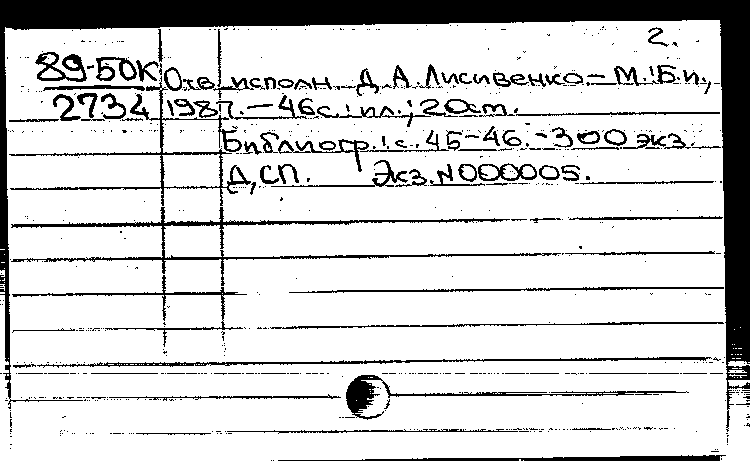 2.
89-50К Отв. исполн. Д.А. Лисивенко.- М.:Б.и.,
2734 1987.-46с.:ил.;20см.
Библиогр.:с.45-46.-300 экз.
Д,СП. Экз.N000005.